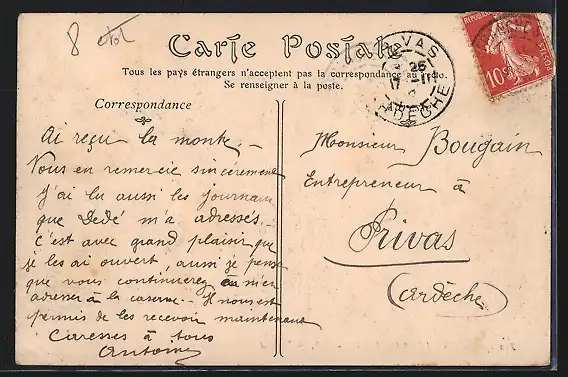 8 
Carte Postale
Tous les pays étrangers n'acceptent pas la correspondance au recto.
Se renseigner à la poste.
PRIVAS
26
17-11
ARDÈCHE
10c
Correspondance
Ai reçu la montre. —
Vous en remercie sincèrement
J'ai lu aussi les journaux
que Dédé m'a adressés.
C'est avec grand plaisir que
je les ai ouvert, aussi je pense
que vous continuerez à m'en
adresser à la caserne. — Il nous est
permis de les recevoir maintenant
Caresses à tous
Antonin
Monsieur Bougain
Entrepreneur à
Privas
(Ardèche)